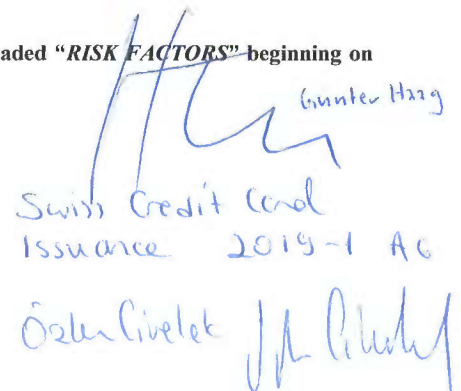 aded “RISK FACTORS” beginning on
Gunter Haag
Swiss Credit Card
Issuance 2019-1 AG
Özlem Civelek